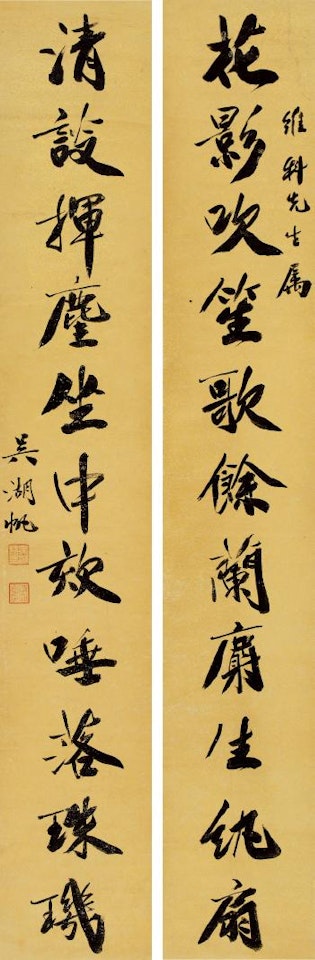 花影吹笙歌餘蘭麝生紈扇
維科先生属
清談揮麈坐中欬唾落珠璣
吳湖帆